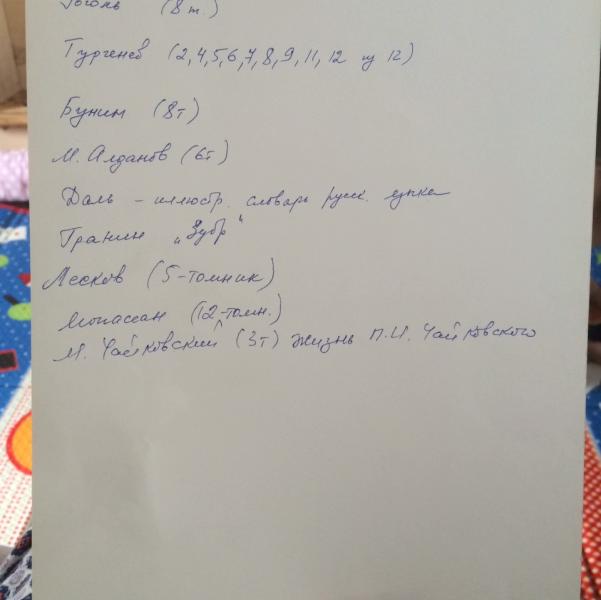 Гоголь (8 т.)
Тургенев (2,4,5,6,7,8,9,11,12 из 12)
Бунин (8т)
М. Алданов (6т)
Даль - иллюстр. словарь русск. языка
Гранин „Зубр"
Лесков (5-томник)
Мопассан (12-томн.)
М. Чайковский (3т) жизнь П.И. Чайковского